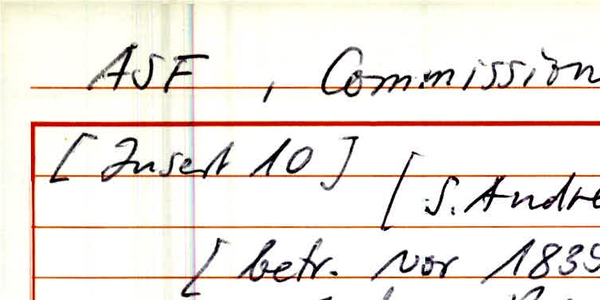 ASF, Commission
[Insert 10]
[S. Andre
[betr. Nov 1839